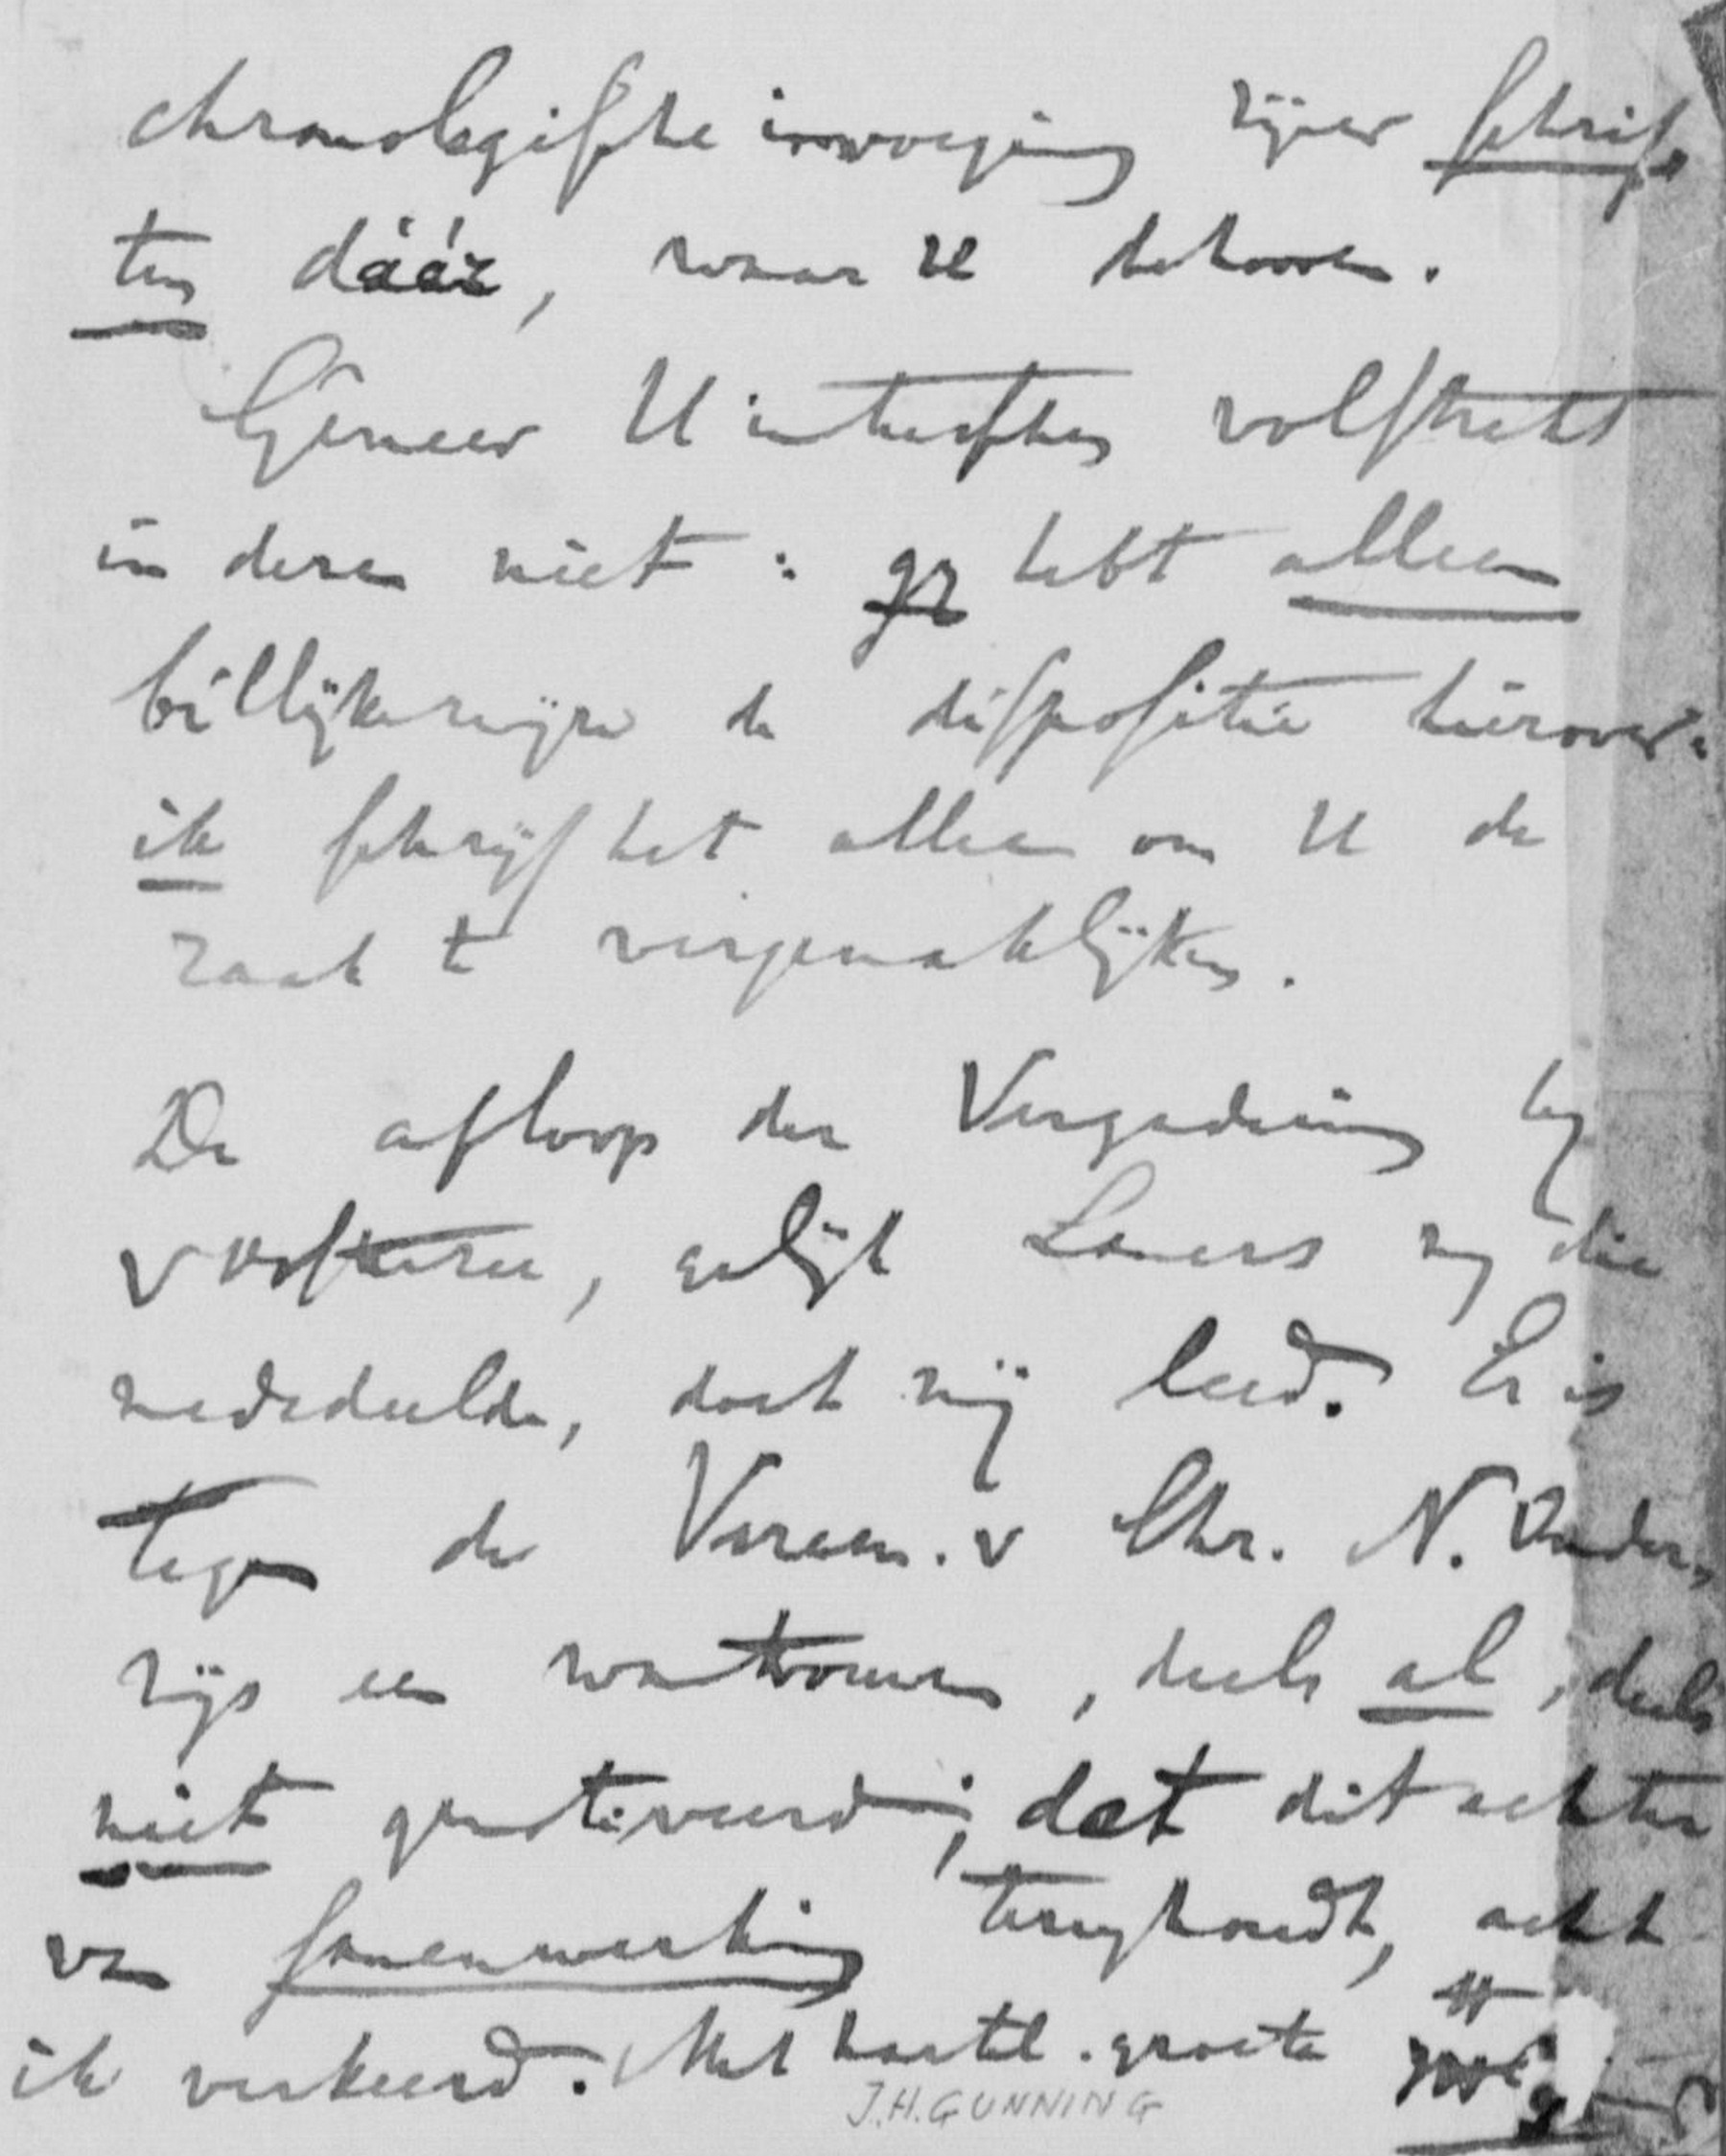 chronologische invoeging zijner schrif
ten dáár, waar ze behooren.
Gêneer U intusschen volstrekt
in dezen niet: gij hebt alleen
billijkerwijze de dispositie hierover:
ik schrijf het alleen om U de
zaak te vergemaklijken.
De afloop der Vergadering bij
v Oosterzee, gelijk Lamers mij die
mededeelde, doet mij leed. Er is
tegen de Vereen. v Chr. N. Onder,
wijs een wantrouwen, deels al, deels
niet gemotiveerd; dat dit echter
van samenwerking terughoudt, acht
ik verkeerd. Met hartel. groete
J.H. GUNNING